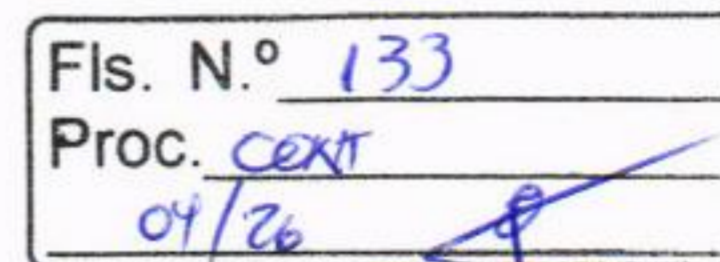 Fls. N.º 133
Proc. CONT
04/26